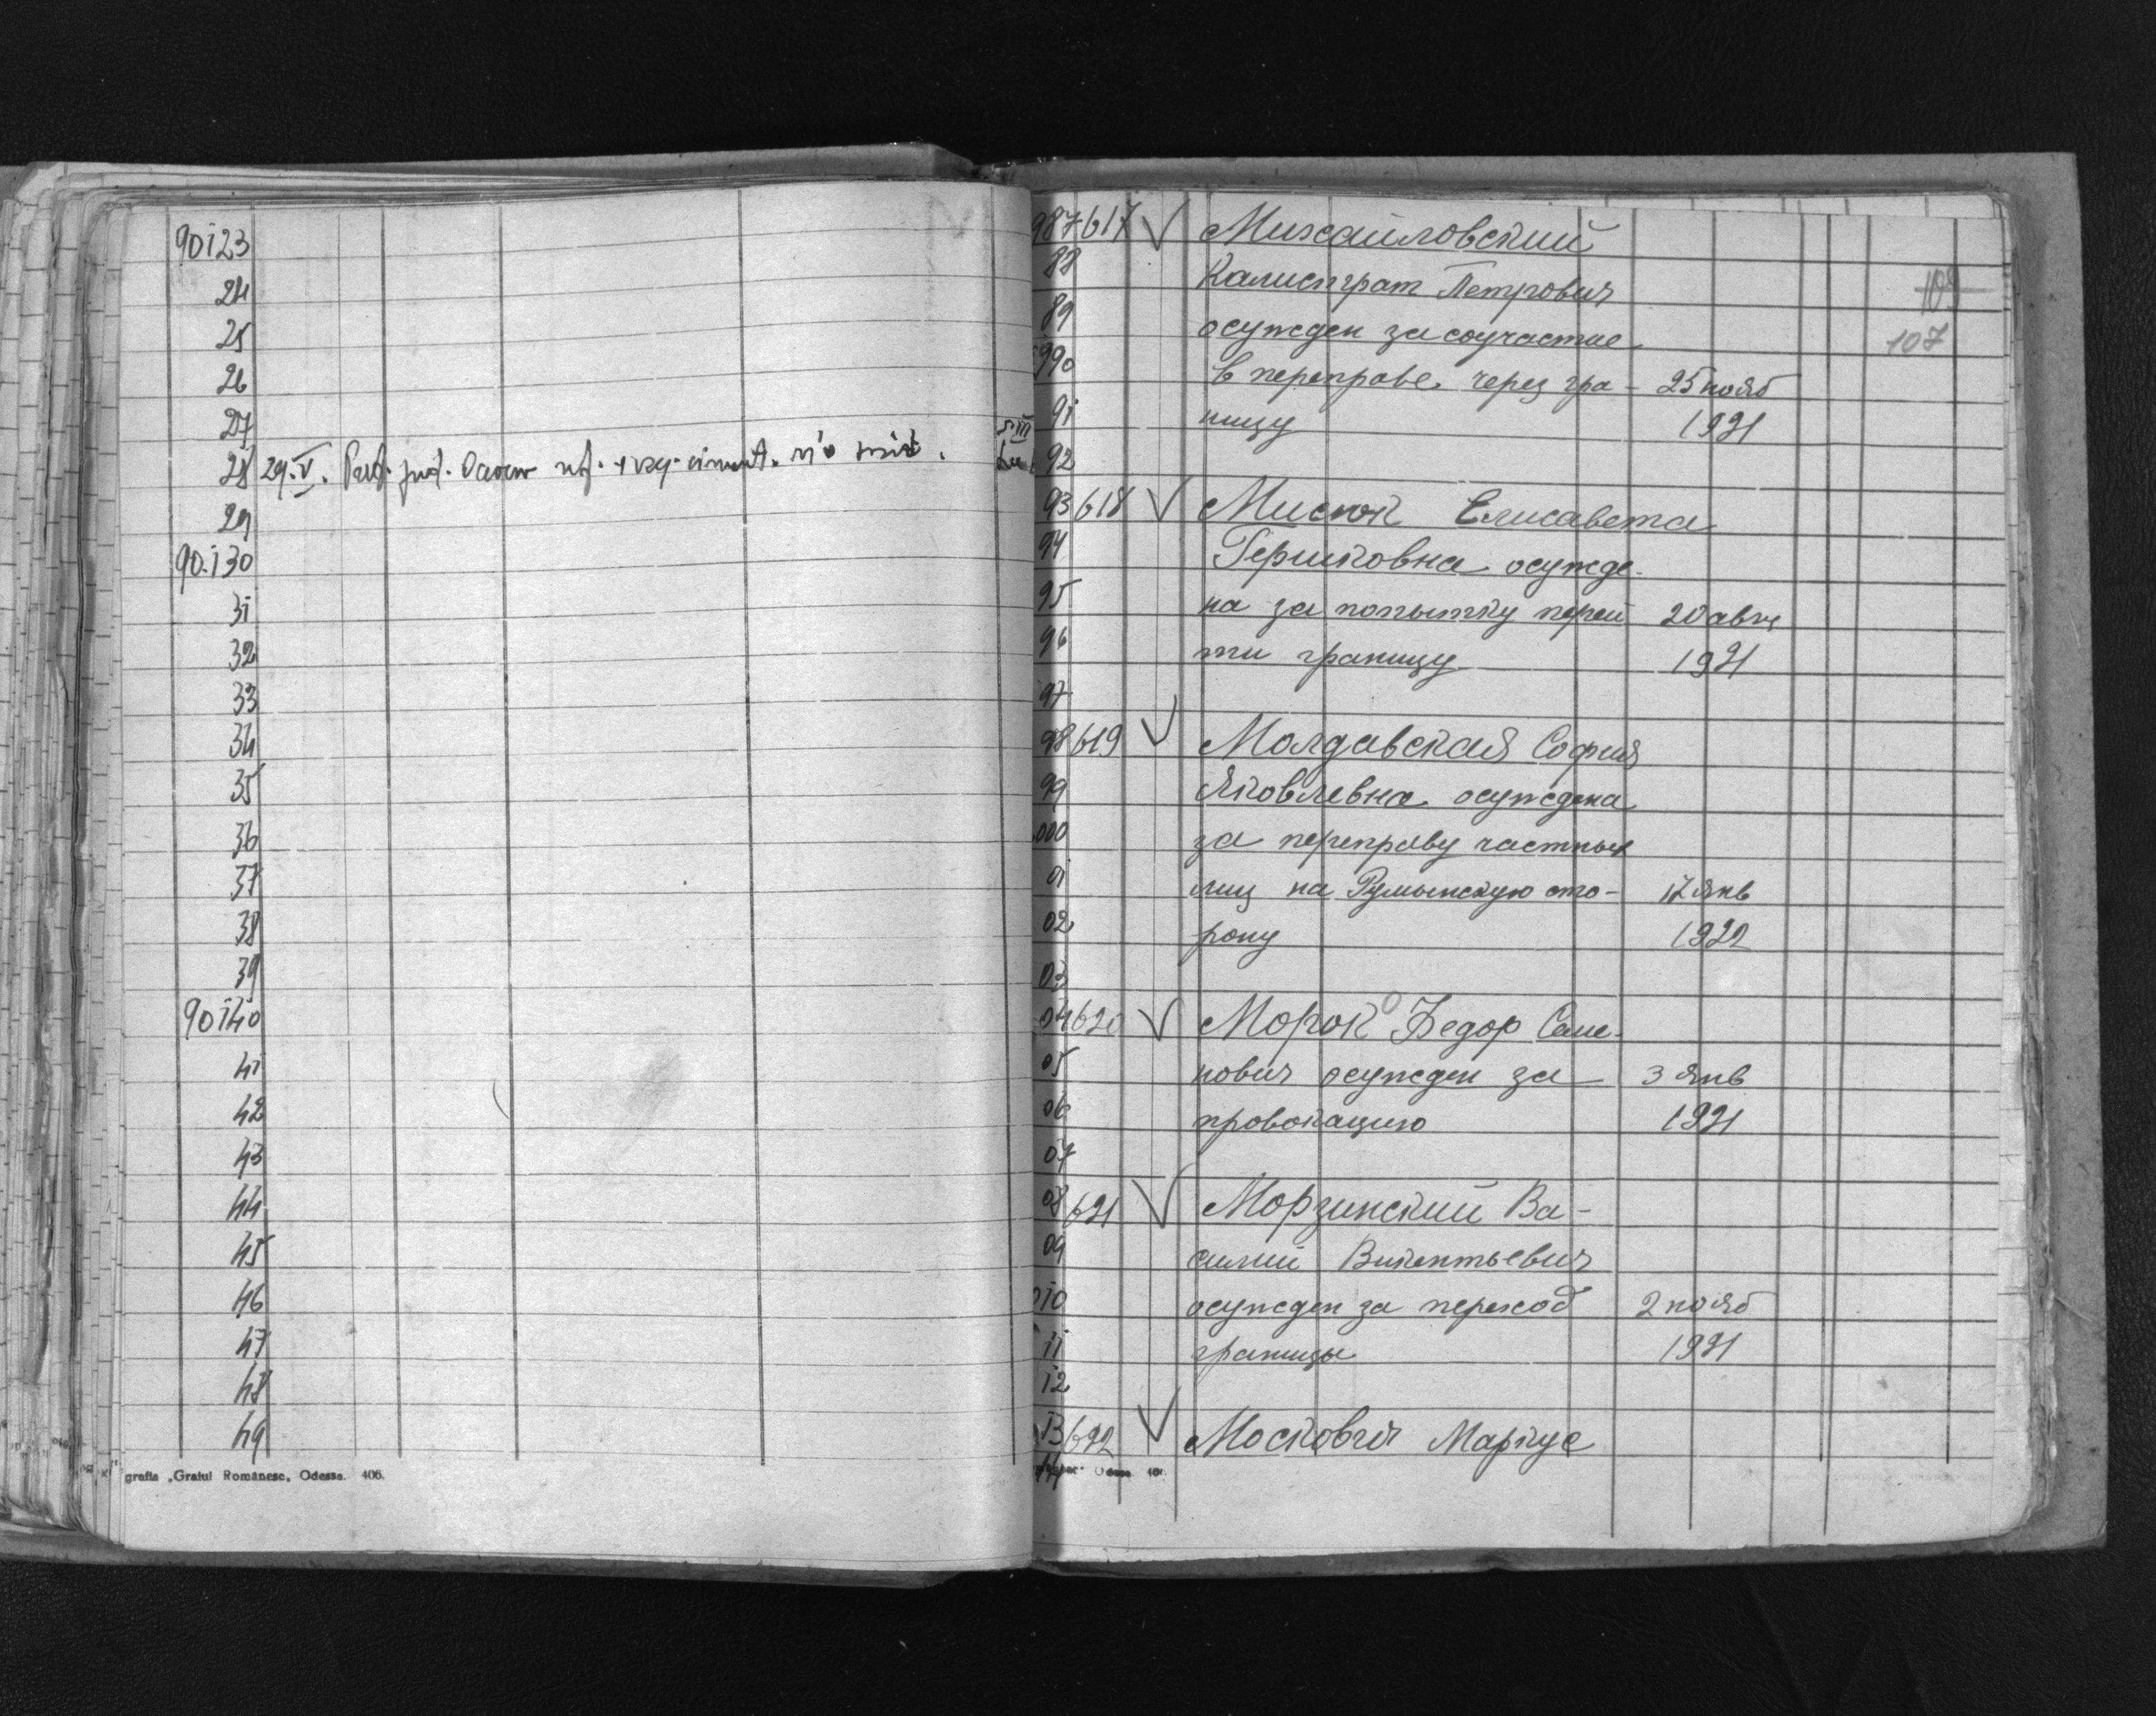 90123
24
25
26
27
28 29.V.
29
90.130
31
32
33
34
35
36
37
38
39
90140
41
42
43
44
45
46
47
48
49
grafia „Graiul Românesc„ Odessa. 406.
987 617 V Михайловский
88 Калистрат Петрович
109
89 осужден за соучастие
107
990 в переправе через гра- 25 нояб
91 ницу 1921
92
93 618 V Мисюк Елисавета
94 Гершковна осужде-
95 на за попытку перей 20 авг
96 ти границу 1921
97
98 619 V Молдавская София
99 Яковлевна осуждена
000 за переправу частных
01 лиц на Румынскую сто- 17 янв
02 рону 1922
03
04 620 V Морок Федор Семе-
05 нович осужден за 3 янв
06 провокацию 1921
07
08 621 V Морзинский Ва-
09 силий Викентьевич
010 осужден за переход 2 нояб
11 границы 1921
12
13 622 V Москович Маркус
14